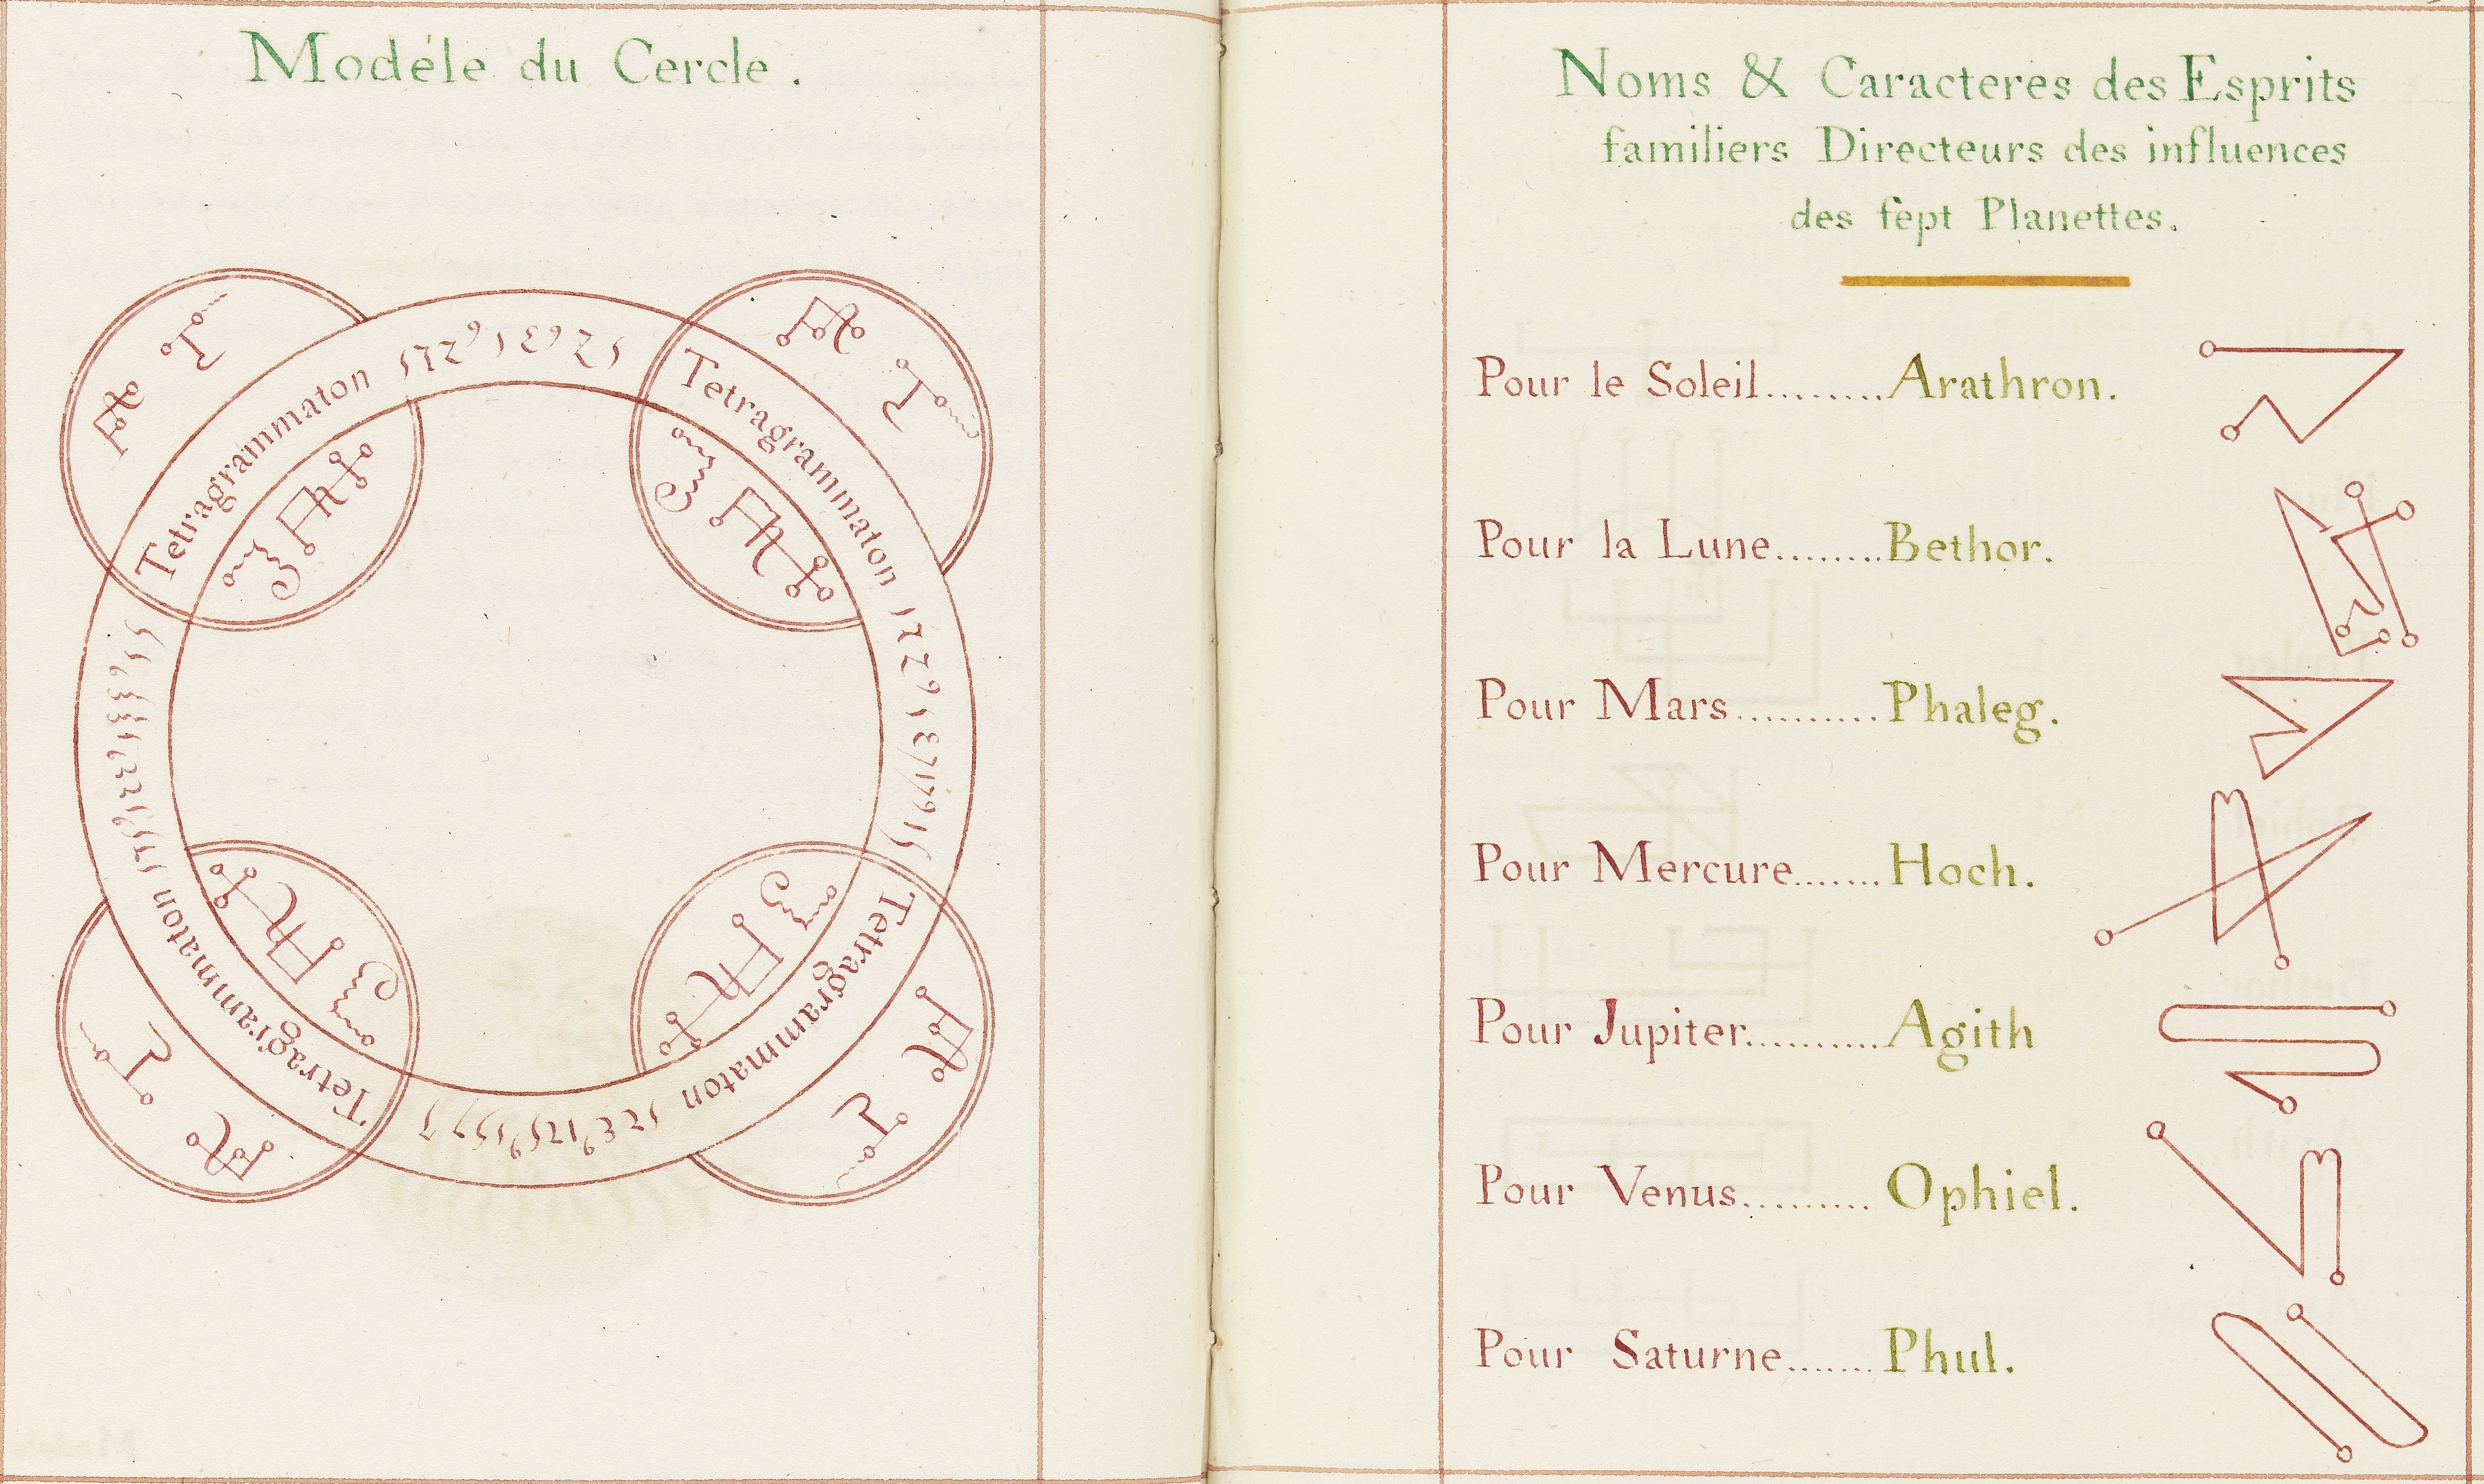 Modéle du Cercle.
Tetragrammaton
Tetragrammaton
Tetragrammaton
Tetragrammaton
Noms & Caracteres des Esprits
familiers Directeurs des influences
des sept Planettes.
Pour le Soleil........Arathron.
Pour la Lune........Bethor.
Pour Mars...........Phaleg.
Pour Mercure.......Hoch.
Pour Jupiter...........Agith
Pour Venus.......... Ophiel.
Pour Saturne.......Phul.